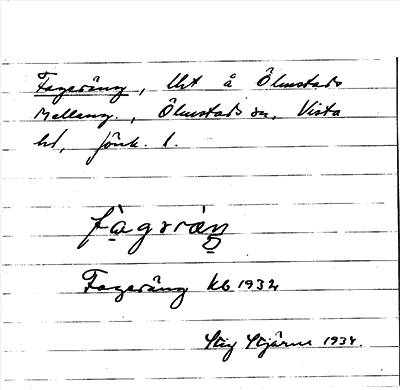 Fageräng, lht å Ölmstads
Mellang., Ölmstads sn, Vista
hd, Jönk. l.
fàgsræ̀ŋ
Fageräng kb 1932
Stig Stjärne 1934.